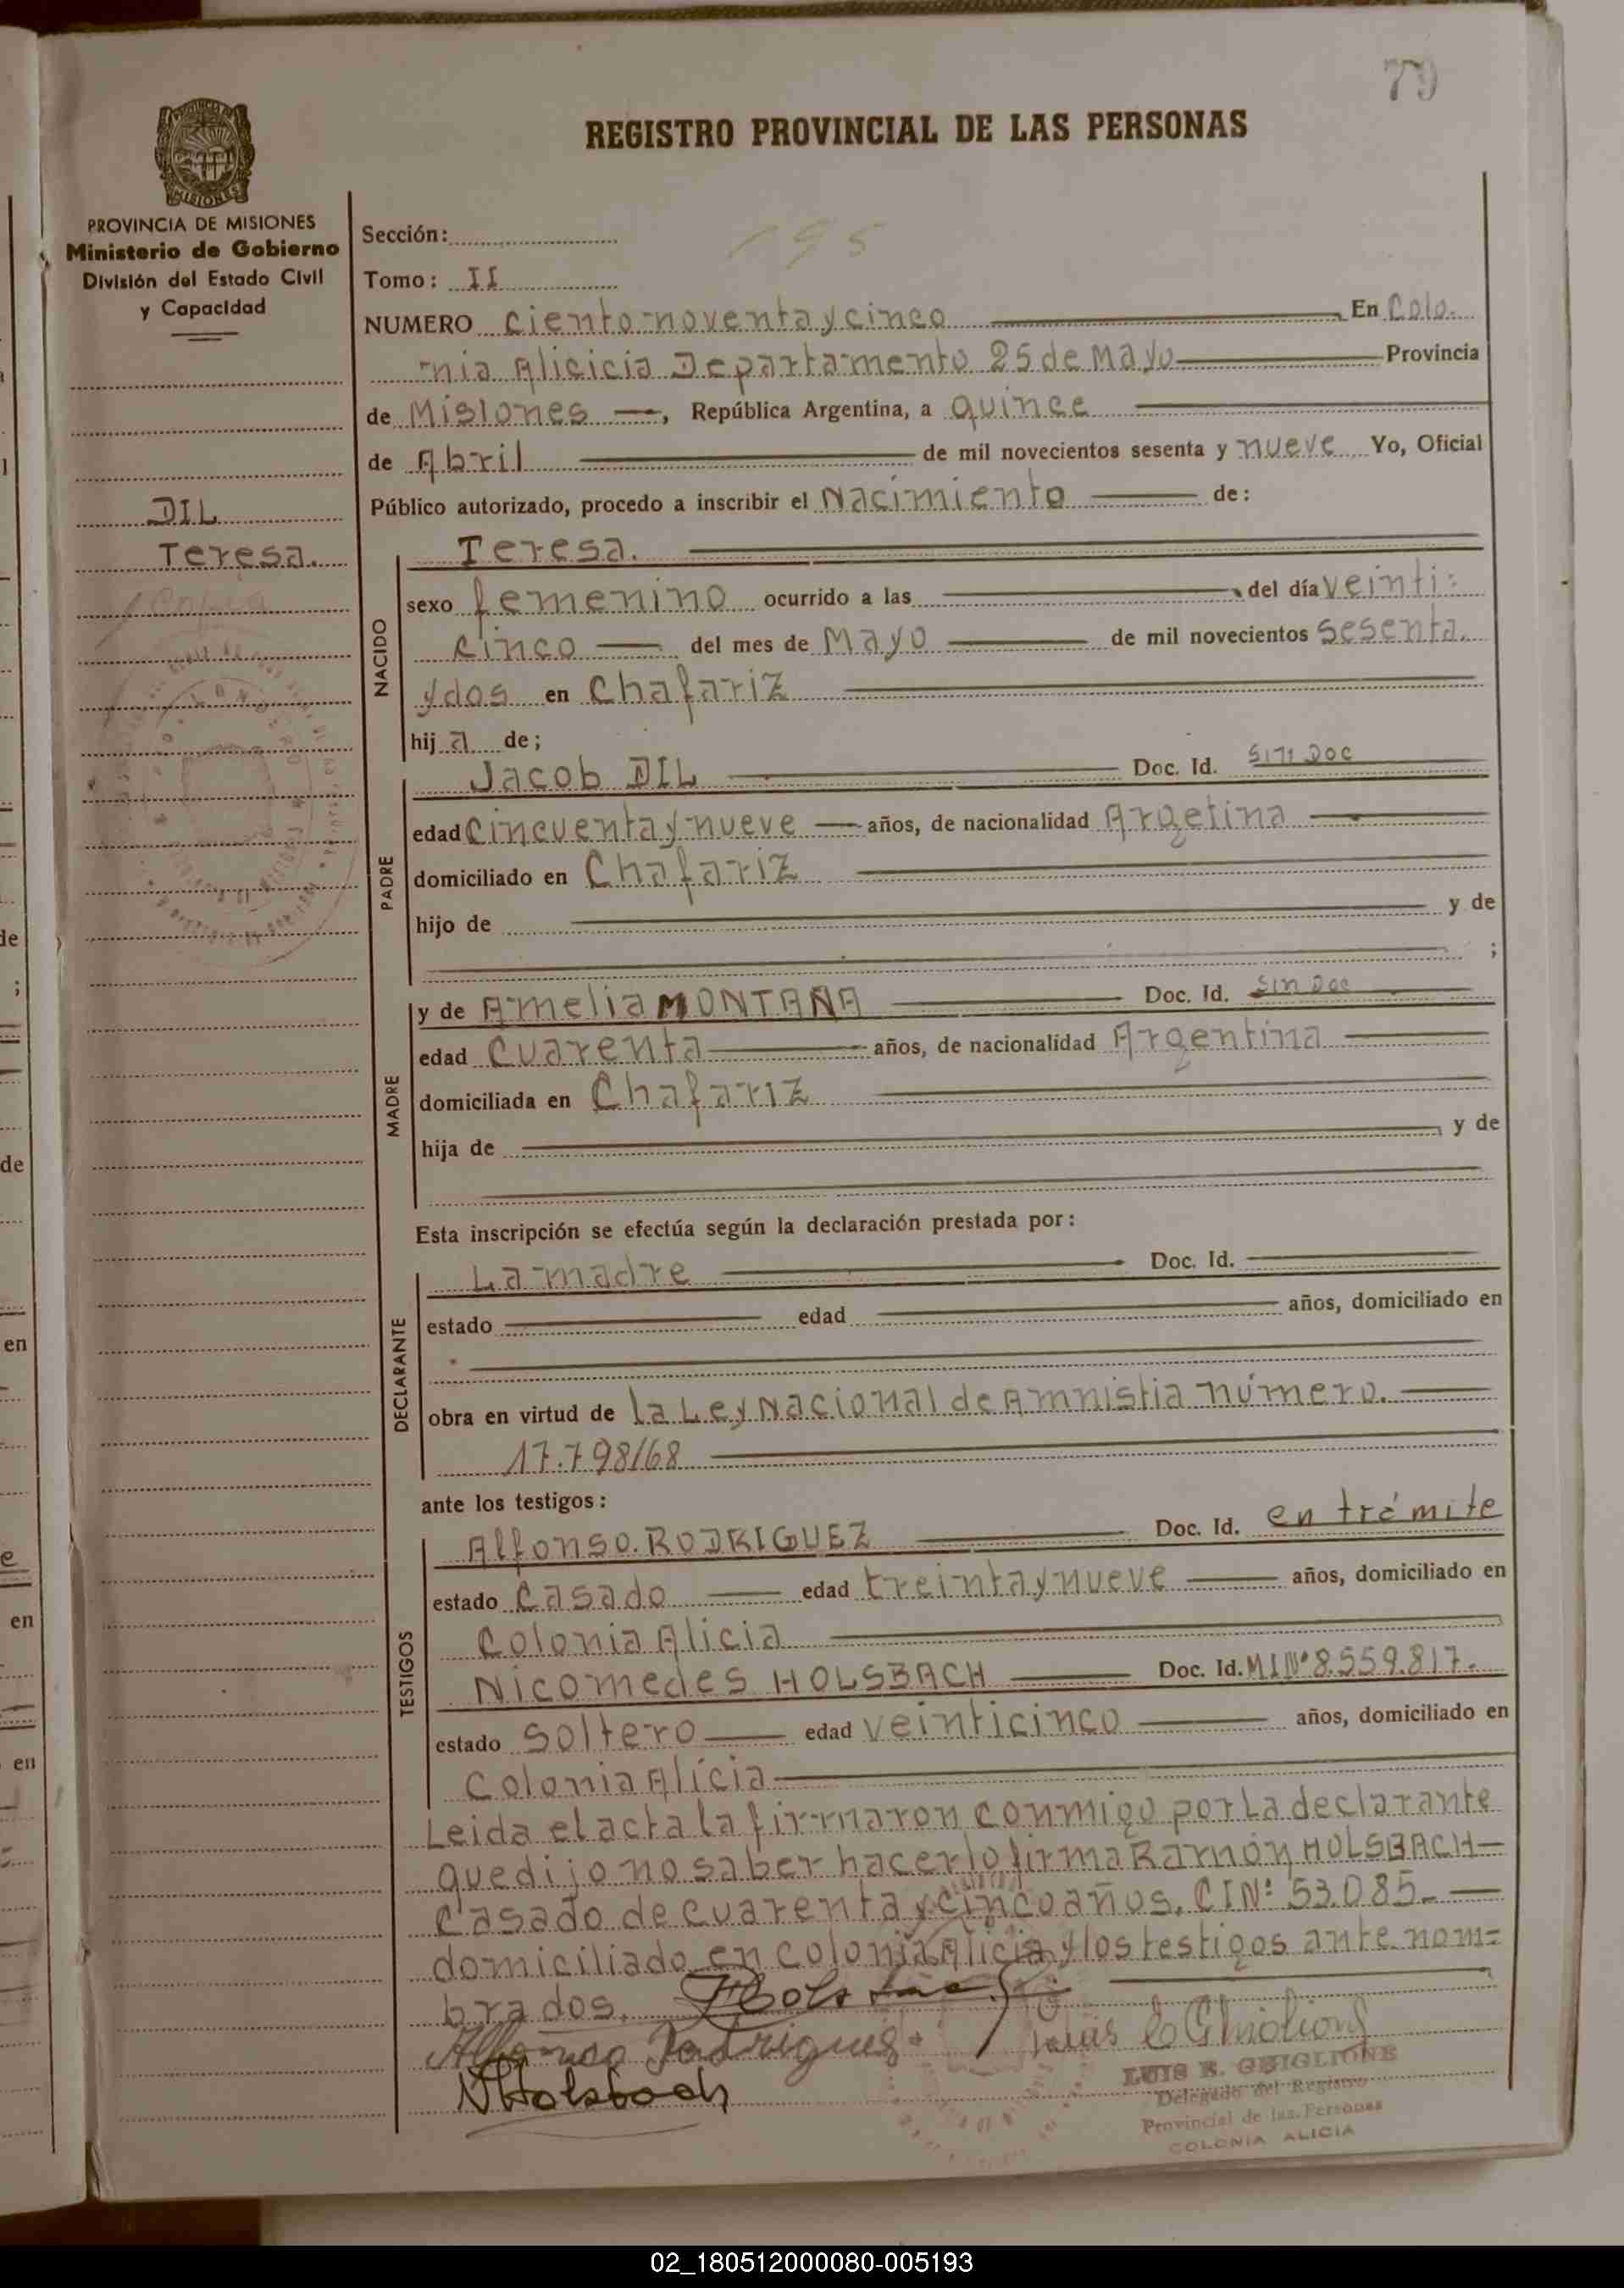 79
REGISTRO PROVINCIAL DE LAS PERSONAS
PROVINCIA DE MISIONES
Ministerio de Gobierno
División del Estado Civil
y Capacidad
DIL
Teresa.
Sección:
195
Tomo: II
NUMERO ciento noventa y cinco En Colo-
nia Alicicia Departamento 25 de Mayo Provincia
de Misiones, República Argentina, a quince
de Abril de mil novecientos sesenta y nueve Yo, Oficial
Público autorizado, procedo a inscribir el Nacimiento de:
NACIDO
Teresa.
sexo femenino ocurrido a las del día veinti-
cinco del mes de Mayo de mil novecientos sesenta
y dos en Chafariz
hij a de;
PADRE
Jacob DIL Doc. Id. Sin Doc
edad Cincuenta y nueve años, de nacionalidad Argetina
domiciliado en Chafariz
hijo de y de
;
MADRE
y de Amelia MONTAÑA Doc. Id. Sin Doc
edad Cuarenta años, de nacionalidad Argentina
domiciliada en Chafariz
hija de y de
Esta inscripción se efectúa según la declaración prestada por:
DECLARANTE
La madre Doc. Id.
estado edad años, domiciliado en
obra en virtud de la Ley Nacional de Amnistia número.
17.798/68
ante los testigos:
TESTIGOS
Alfonso RODRIGUEZ Doc. Id. en trámite
estado Casado edad treinta y nueve años, domiciliado en
Colonia Alicia
Nicomedes HOLSBACH Doc. Id. M.I Nº 8.559.817.
estado Soltero edad veinticinco años, domiciliado en
Colonia Alicia
Leida el acta la firmaron conmigo por la declarante
que dijo no saber hacerlo firma Ramón HOLSBACH
Casado de cuarenta y cinco años, C I Nº 53.085.
domiciliado en Colonia Alicia y los testigos ante nom=
brados.
Alfonso Rodriguez
Luis E Ghiglione
N Holsbach
LUIS E. GHIGLIONE
Delegado del Registro
Provincial de las Personas
COLONIA ALICIA
02_180512000080-005193